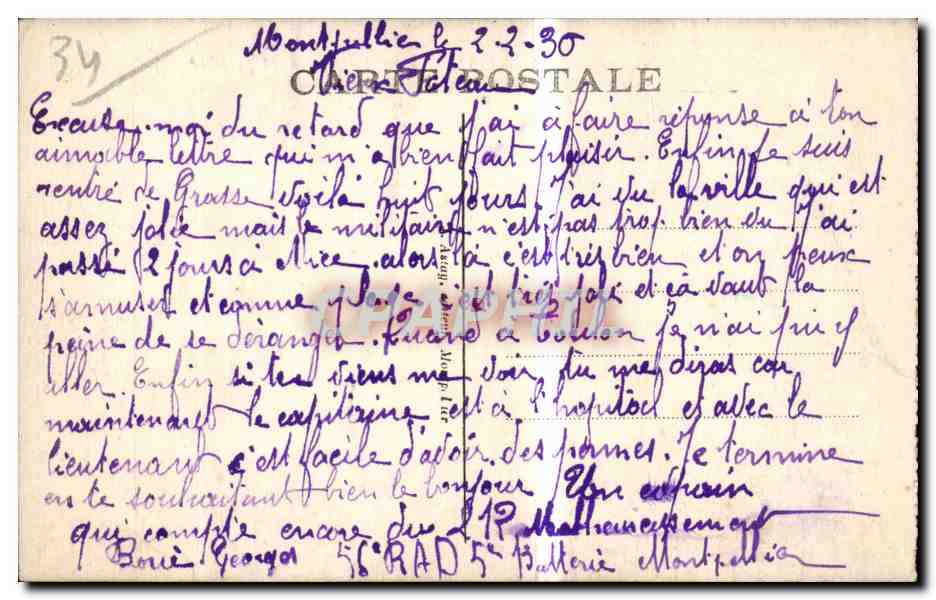 34
Montpellier le 2-2-30
CARTE POSTALE
Vieux Poteau
Excuse-moi du retard que j'ai à faire réponse à ton
aimable lettre qui m'a bien fait plaisir. Enfin je suis
rentré de Grasse voilà huit jours. J'ai vu la ville qui est
assez jolie mais le militaire n'est pas trop bien vu j'ai
passé 2 jours à Nice alors là c'est très bien et on peux
s'amuser et comme plage c'est très joli et ça vaut la
peine de se déranger. Quand à Toulon je n'ai pu y
aller. Enfin si tu viens me voir tu me diras car
maintenant le capitaine est à l'hôpital et avec le
lieutenant c'est facile d'avoir des permes. Je termine
en te souhaitant bien le bonjour Ton copain
qui compte encore du
Georges 56e RAD 5e Batterie Montpellier